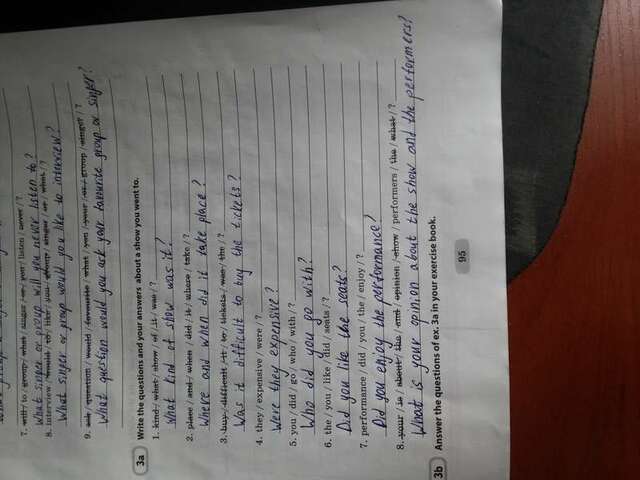 7. will / to / group / what / singer / or / you / listen / never / ?
What singer or group will you never listen to?
8. interview / would / to / like / you / group / singer / or / what / ?
What singer or group would you like to interview?
9. ask / question / would / favourite / what / you / your / or / group / singer / ?
What question would you ask your favourite group or singer?
3a Write the questions and your answers about a show you went to.
1. kind / what / show / of / it / was / ?
What kind of show was it?
2. place / and / when / did / it / where / take / ?
Where and when did it take place?
3. buy / difficult / it / to / tickets / was / the / ?
Was it difficult to buy the tickets?
4. they / expensive / were / ?
Were they expensive?
5. you / did / go / who / with / ?
Who did you go with?
6. the / you / like / did / seats / ?
Did you like the seats?
7. performance / did / you / the / enjoy / ?
Did you enjoy the performance?
8. your / is / about / the / and / opinion / show / performers / the / what / ?
What is your opinion about the show and the performers?
3b Answer the questions of ex. 3a in your exercise book.
95